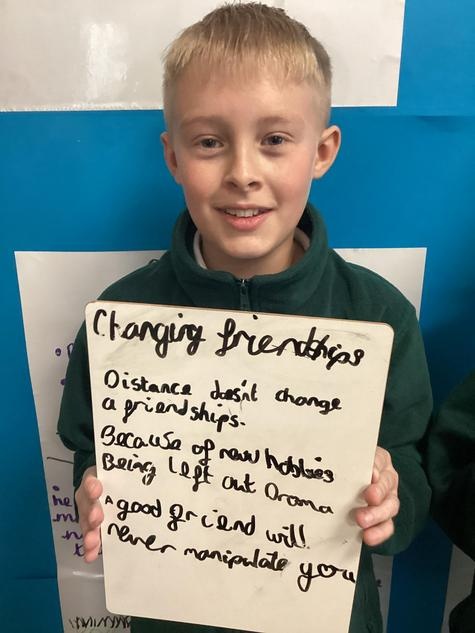 Changing friendships
Distance doesn't change
a friendships.
Because of new hobbies
Being left out Drama
A good friend will
never manipulate you